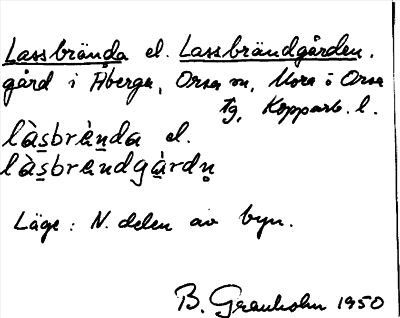 Lassbrända el. Lassbrändgården,
gård i Åberga, Orsa sn, Mora o Orsa
tg, Kopparb. l.
là̱sbrè̱nda el.
là̱sbrèndgà̱rdṇ
Läge: N. delen av byn.
B. Granholm 1950